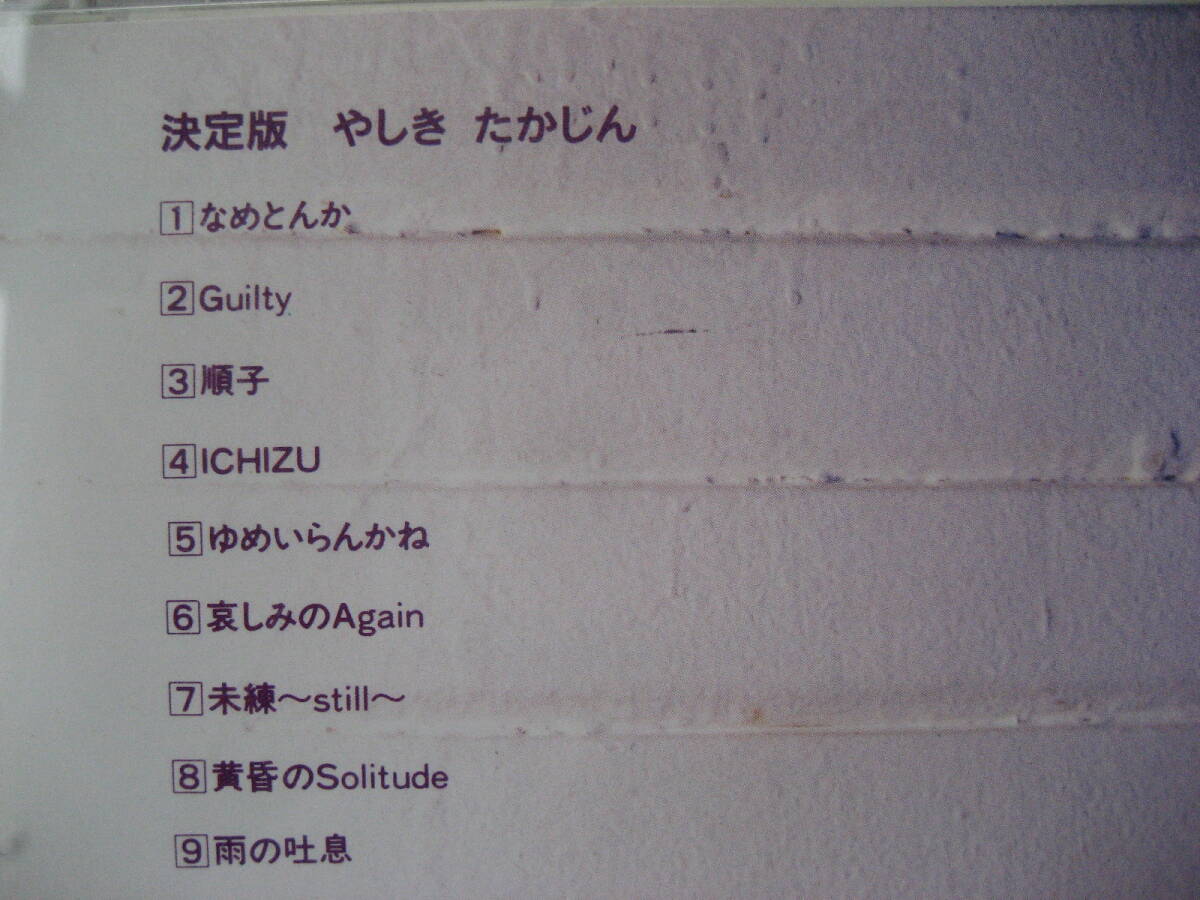 決定版 やしき たかじん
1 なめとんか
2 Guilty
3 順子
4 ICHIZU
5 ゆめいらんかね
6 哀しみのAgain
7 未練〜still〜
8 黄昏のSolitude
9 雨の吐息